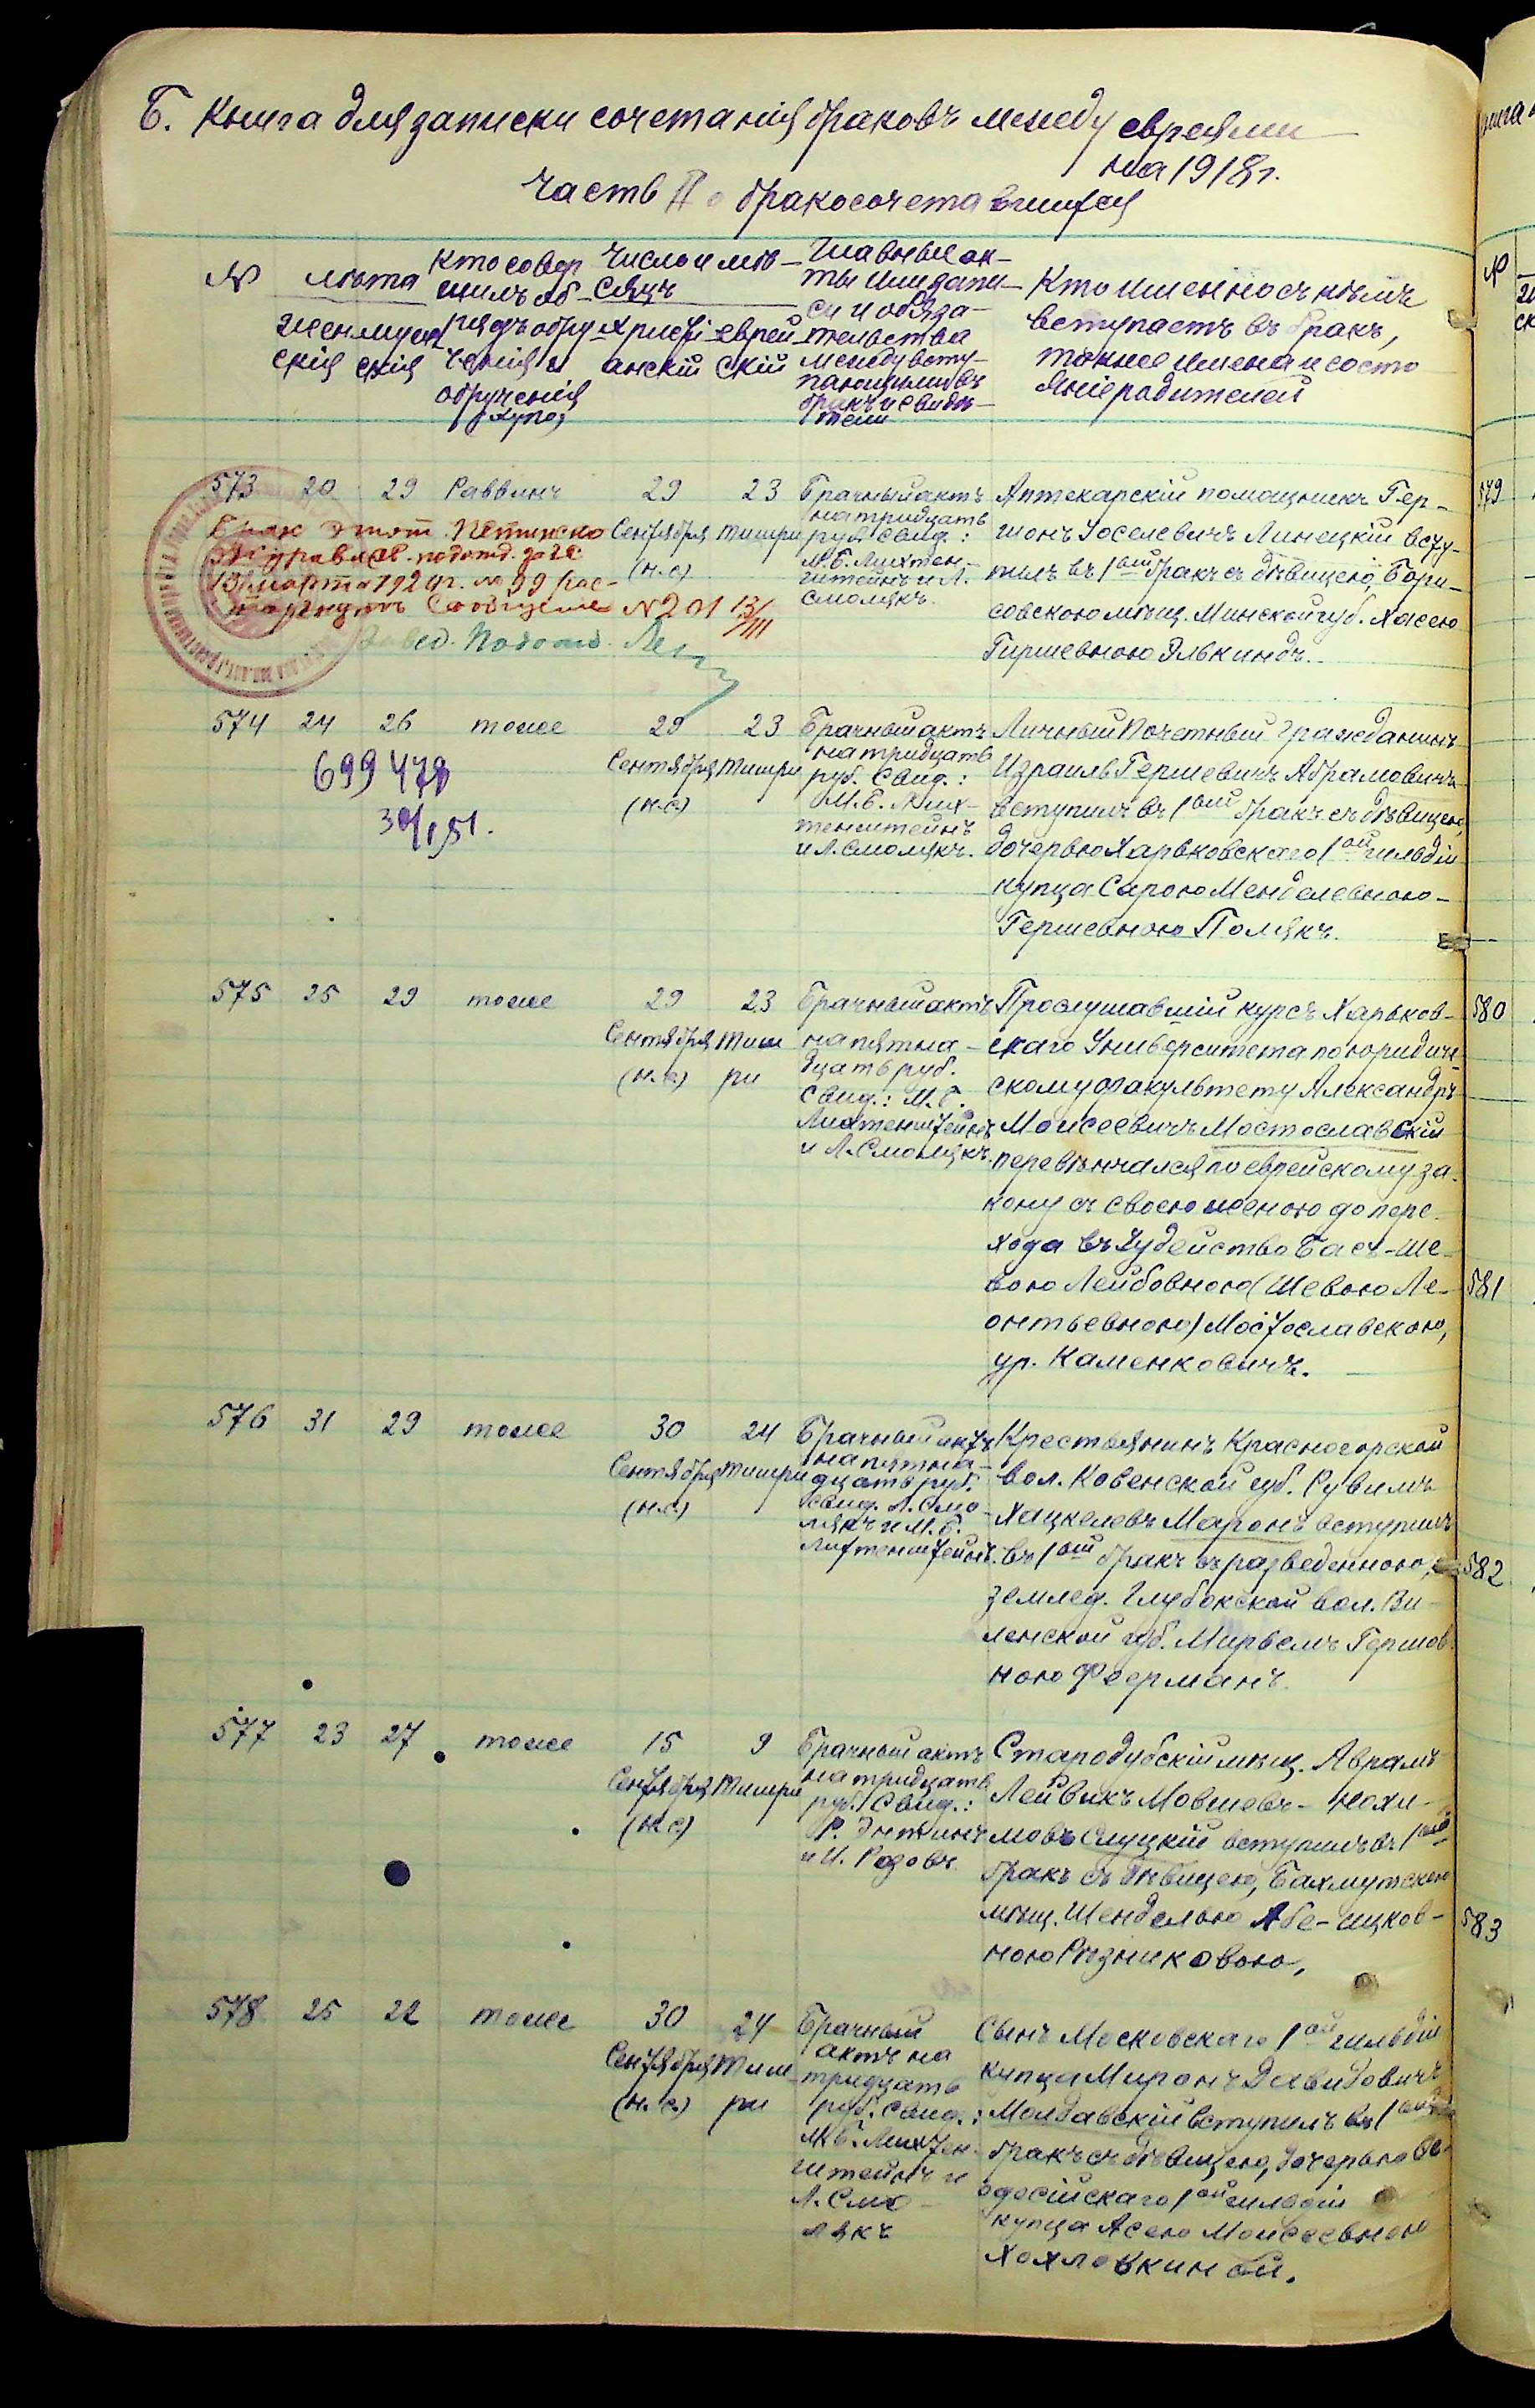 Б. Книга для записки сочетанія браковъ между евреями
на 1918 г.
Часть II о бракосочетавшихся
№
лѣта
женскія
мужескія
Кто совер
шилъ об-
рядъ обру
ченія и
обрученія
Число и мѣ-
сяцъ
Христі-
анскій
еврей-
скій
Главные ак-
ты или запи-
си и обяза-
тельства
между всту-
пающими въ
бракъ и свидѣ-
тели
Кто именно съ кѣмъ
вступаетъ въ бракъ,
также имена и состо
яніе родителей
573 20 29 Раввинъ
29
Сентября
(н.с.)
23
Тишри
Брачный актъ
на тридцать
руб. Свид.:
М.Б. Лихтен-
штейнъ и Л.
Смолякъ.
Аптекарскій помощникъ Гер-
шонъ Іоселевичъ Линецкій всту-
пилъ въ 1ый бракъ съ дѣвицею, Бори-
совскою мѣщ. Минской губ. Хасею
Гиршевною Элькиндъ.
Брак этот
13 марта 192 г. № 99 рас-
торгнут. Сообщение № 201 13/III
Завед. Подотд.
574 24 26 тоже
29
Сентября
(н.с.)
23
Тишри
Брачный актъ
на тридцать
руб. Свид.:
М.Б. Лих-
тенштейнъ
и Л. Смолякъ.
Личный Почетный Гражданинъ
Израиль Гершевичъ Абрамовичъ
вступилъ въ 1ый бракъ съ дѣвицею,
дочерью Харьковскаго 1ой гильдіи
купца Сарою Менделевною-
Гершевною Полякъ.
699478
30/I 51.
575 25 29 тоже
29
Сентября
(н.с.)
23
Тиш
ри
Брачный актъ
на пятна-
дцать руб.
Свид.: М.Б.
Лихтенштейнъ
и Л. Смолякъ.
Прослушавшій курсъ Харьков-
скаго Университета по юридиче
скому факультету Александръ
Моисеевичъ Мостославскій
перевѣнчался по еврейскому за-
кону съ своею женою до пере-
хода въ Іудейство Бась-Ше-
вою Лейбовною (Шевою Ле-
онтьевною) Мостославскою,
ур. Каменковичъ.
576 31 29 тоже
30
Сентября
(н.с.)
24
Тишри
Брачный актъ
на пятна-
дцать руб.
Свид. Л. Смо-
лякъ и М.Б.
Лихтенштейнъ.
Крестьянинъ Красногорской
вол. Ковенской губ. Рувимъ
Хацкелевъ Маронъ вступилъ
въ 1ый бракъ съ разведенною,
землед. Глубокской вол. Ви-
ленской губ. Мирьемъ Гершов
ною Феерманъ.
577 23 27 тоже
15
Сентября
(н.с.)
9
Тишри
Брачный актъ
на тридцать
руб. Свид.:
Р. Энтинъ
и И. Розовъ.
Стародубскій мѣщ. Аврамъ
Лейвикъ Мовшевъ-Нохи-
мовъ Слуцкій вступилъ въ 1ый
бракъ съ дѣвицею, Бахмутскою
мѣщ. Шенделью Абе-Ицков-
ною Рѣзниковою.
578 25 22 тоже
30
Сентября
(н.с.)
24
Тиш-
ри
Брачный
актъ на
тридцать
руб. Свид.:
М.Б. Лихтен-
штейнъ и
Л. Смо-
лякъ
Сынъ Московскаго 1ой гильдіи
купца Миронъ Давидовичъ
Молдавскій вступилъ въ 1ый
бракъ съ дѣвицею, дочерью Ѳе-
одосійскаго 1ой гильдіи
купца Асею Моисеевною
Хохловкиной.
№
579
580
581
582
583